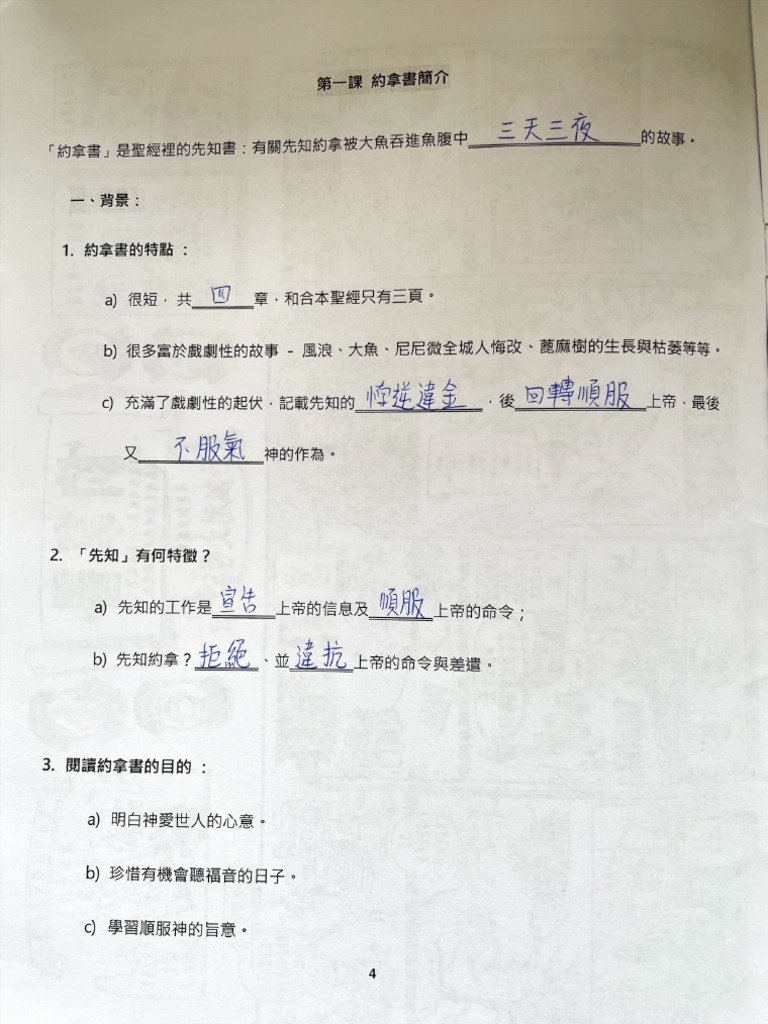 第一課 約拿書簡介
「約拿書」是聖經裡的先知書：有關先知約拿被大魚吞進魚腹中三天三夜的故事。
一、背景：
1. 約拿書的特點：
a) 很短，共四章，和合本聖經只有三頁。
b) 很多富於戲劇性的故事 - 風浪、大魚、尼尼微全城人悔改、蓖麻樹的生長與枯萎等等。
c) 充滿了戲劇性的起伏，記載先知的悖逆違金，後回轉順服上帝，最後
又不服氣神的作為。
2. 「先知」有何特徵？
a) 先知的工作是宣告上帝的信息及順服上帝的命令；
b) 先知約拿？拒絕、並違抗上帝的命令與差遣。
3. 閱讀約拿書的目的：
a) 明白神愛世人的心意。
b) 珍惜有機會聽福音的日子。
c) 學習順服神的旨意。
4